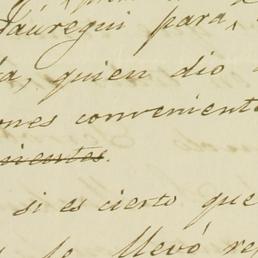 Jáuregui para
quien dio
ones conveniente
cientes.
si es cierto que
se llevó re